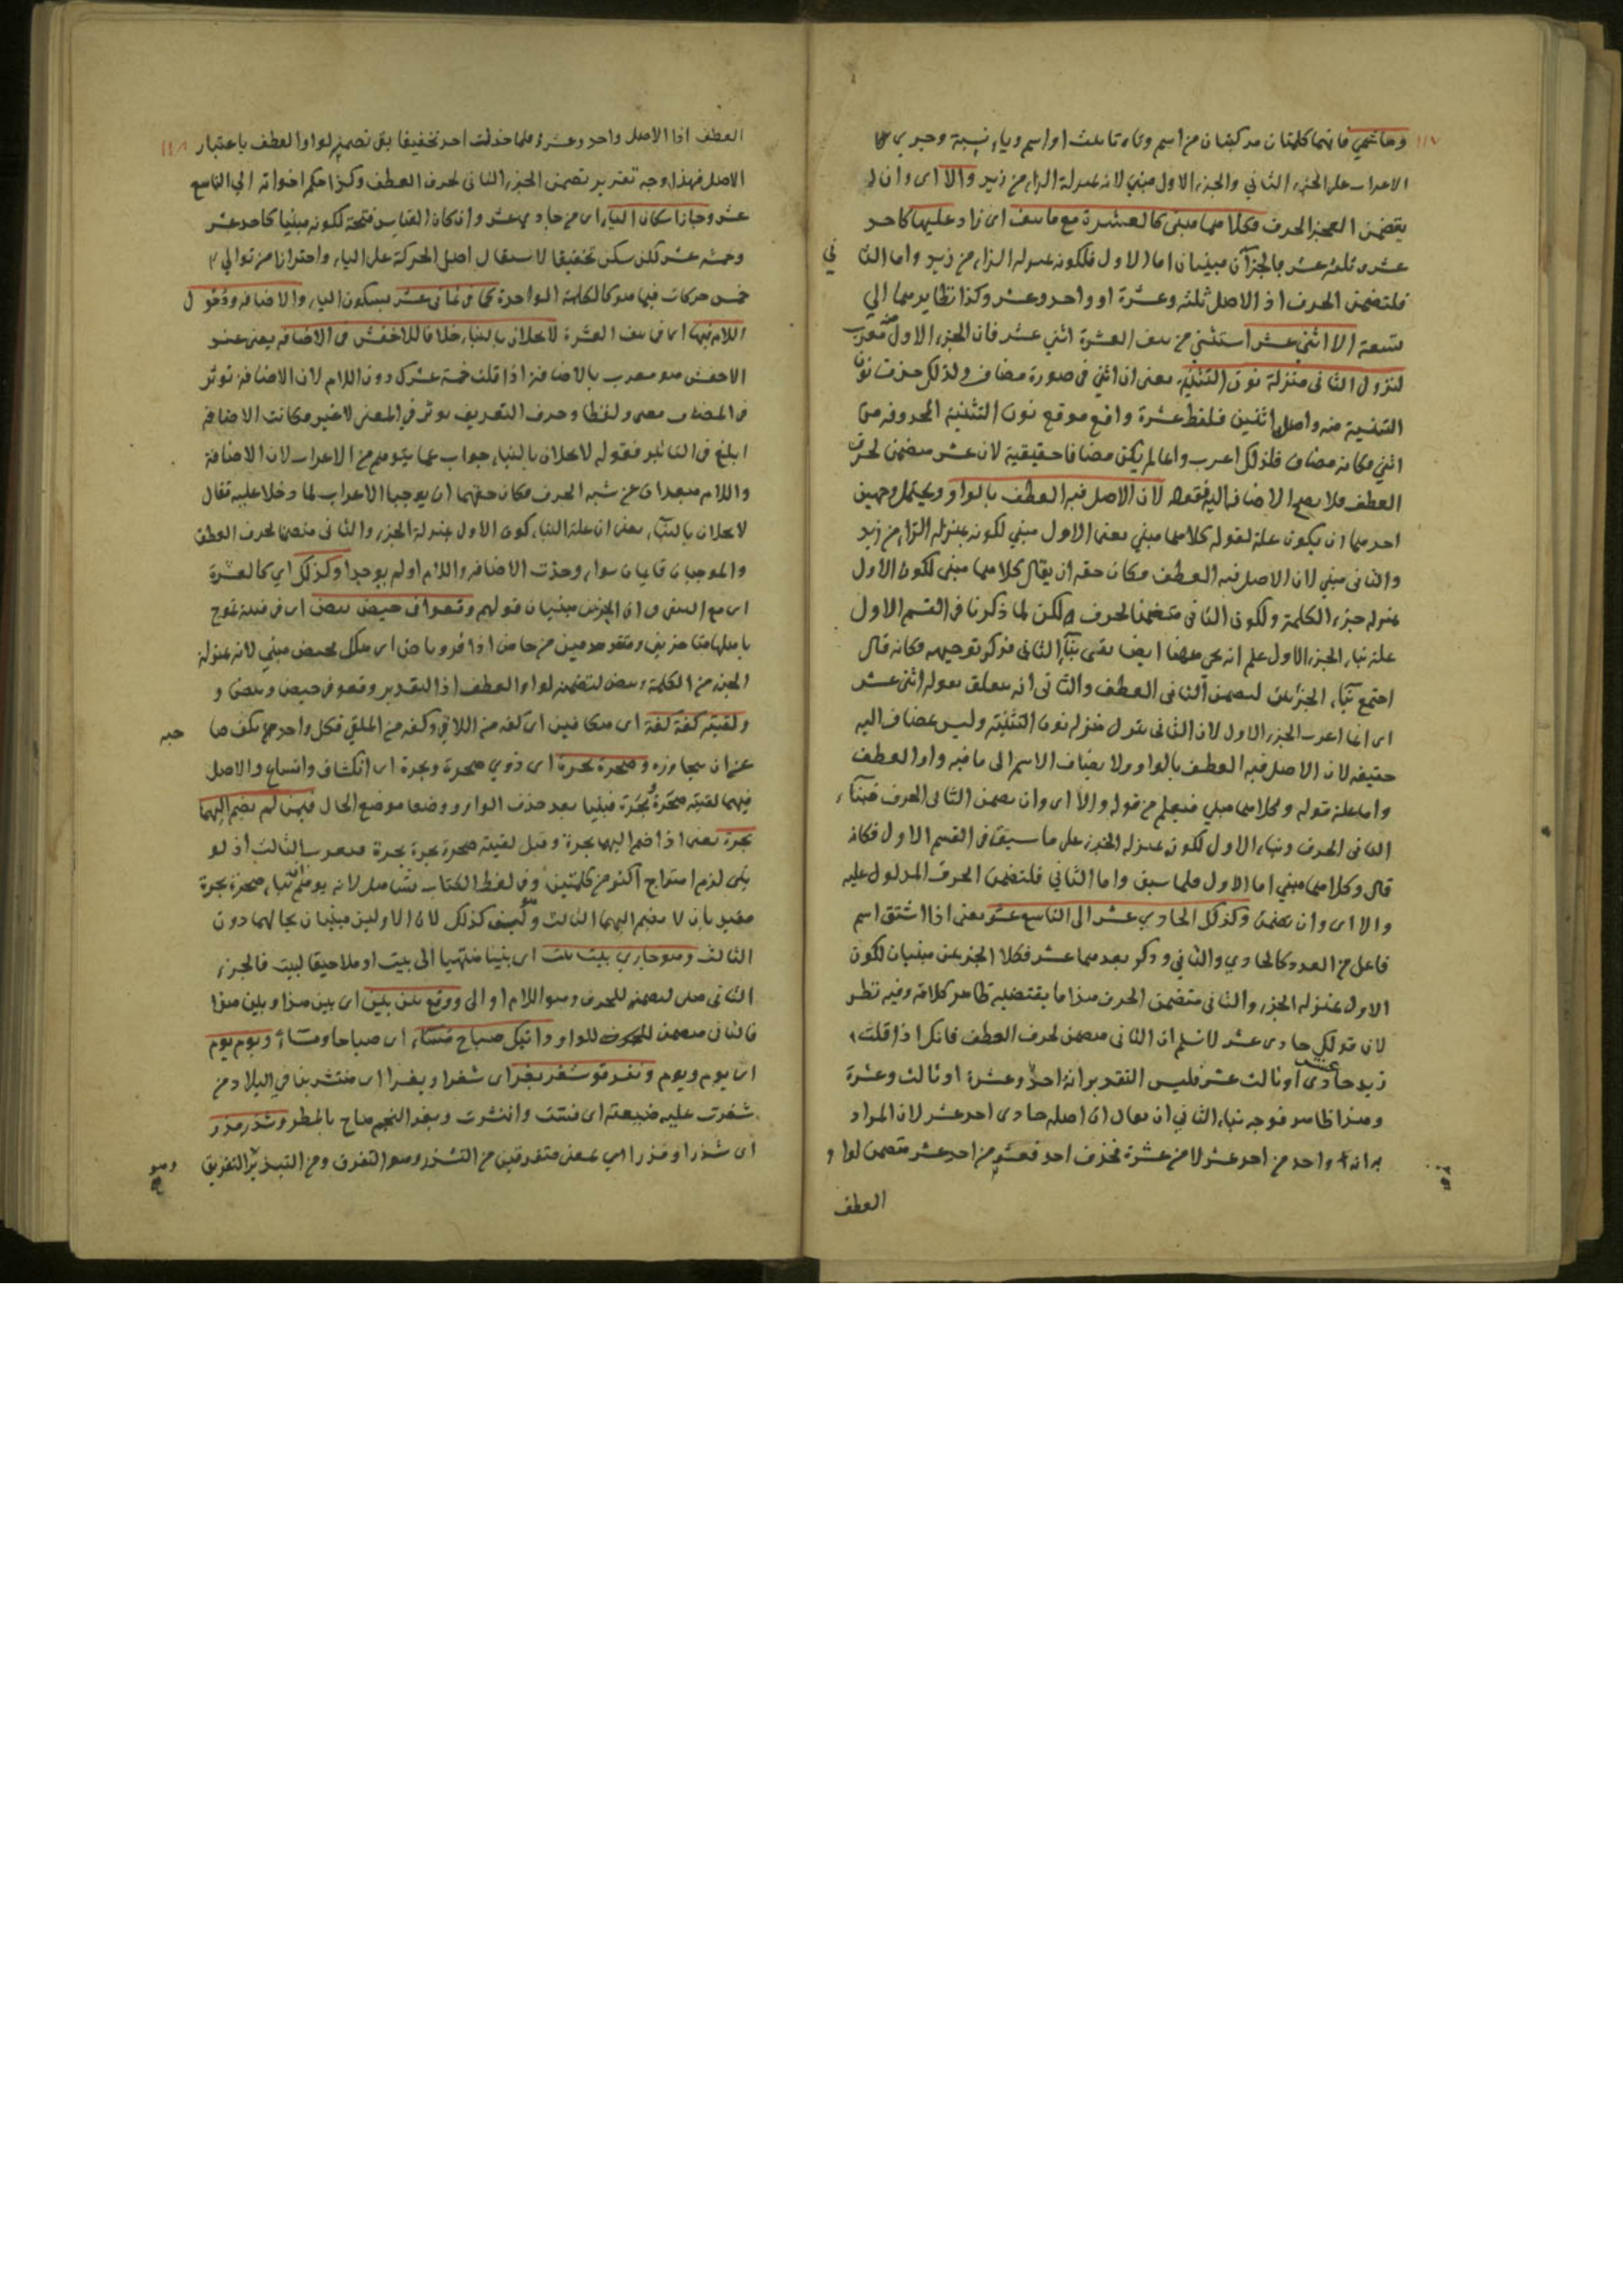 ١١٧
وهاشمي فانهما كلمتان مركبتان من اسم وتاء تانيث او اسم وياء نسبة وجرى
الاعراب على الجزء الثاني والجزء الاول مبني لانه بمنزلة الزاء من زيد والا اى وان
يتضمن العجز الحرف فكلاهما مبنى كالعشرة مع ما نيف اى زاد عليها كاحد
عشر وثلثة عشر فالجزآن مبنيان اما الاول فلكونه بمنزلة الزاء من زيد واما الثا ني
فلتضمن الحرف اذ الاصل ثلثة وعشرة او واحد وعشر وكذا نظايرهما الي
تسعة الا اثنى عشر استثني من نيف العشرة اثني عشر فان الجزء الاول منه معرب
لنزول الثانى منزلة نون التثنية يعنى ان اثني فى صورة مضاف ولذلك حذفت نون
التثنية منه واصله اثنين فلفظ عشرة واقع موقع نون التثنية المحذوفة من
اثني فكانه مضاف فلذلك اعرب وانما لم يكن مضافا حقيقية لان عشر متضمن لحرف
العطف فلا يصح الاضافة اليه فقوله لان الاصل فيه العطف بالواو ويحتمل وجهين
احدهما ان يكون علة لقوله كلاهما مبني يعنى الاول مبني لكونه بمنزلة الزاء من زيد
والثانى مبني لان الاصل فيه العطف وكان حقه ان يقال كلاهما مبنى لكون الاول
بمنزلة جزء الكلمة ولكون الثانى متضمنا لحرف ولكن لما ذكر نا فى القسم الاول
علة بناء الجزء الاول علم انه هى ههنا ايضا بقى بناء الثانى فذكر توجيهه فكانه قال
اجتمع بناء الجزئين لتضمن الثانى العطف والثانى انه يتعلق بقوله اثنى عشر
اى انما اعرب الجزء الاول لان الثانى ينزل منزلة نون التثنية وليس بمضاف اليه
حقيقة لان الاصل فيه العطف بالواو ولا يضاف الاسم الى ما فيه واو العطف
واما علة قوله وكلاهما مبني فيعلم من قوله والا اى وان تضمن الثانى الحرف فبناء
الثانى الحرف وبناء الاول لكونه بمنزلة الجزء على ما سبق فى القسم الاول فكانه
قال وكلاهما مبني اما الاول فلما سبق واما الثاني فلتضمن الحرف المدلول عليه
والا اى وان تضمن وكذلك الحادي عشر الى التاسع عشر يعنى اذا اشتق اسم
فاعل من العدد كالحادي والثاني وذكر بعدهما عشر فكلا الجزئين مبنيان لكون
الاول بمنزلة الجزء والثانى متضمن الحرف هذا ما يقتضيه ظاهر كلامه وفيه نظر
لان قولك حادى عشر لا نسلم ان الثانى متضمن لحرف العطف فانك اذا قلت
زيد حادى عشر او ثالث عشر فليس التقدير انه احد وعشرة او ثالث وعشرة
وهذا ظاهر فوجه بناء الثاني ان يقال ان اصله حادى احد عشر لان المراد
به انه واحد من احد عشر لا من عشرة فحذف احد فعشر من احد عشر متضمن لواو
العطف
١١٨
العطف اذا الاصل واحد وعشرة فلما حذفت احد تخفيفا بقى تضمنه لواو العطف باعتبار
الاصل فهذا وجه تقرير تضمن الجزء الثانى لحرف العطف وكذا حكم اخواته الي التاسع
عشر وجاز اسكان الياء اى من حادي عشر وان كان القياس فتحة لكونه مبنيا كاحد عشر
وخمسة عشر لكن سكن تخفيفا لاستثقال اصل الحركة على الياء واحترازا من توالي
خمس حركات فيما هو كالكلمة الواحدة كما فى ثمانى عشر بسكون الياء والاضافة ودخول
اللام فيها اى فى نيف العشرة لا يخلان بالبناء خلافا للاخفش فى الاضافة يعنى عند
الاخفش هو معرب بالاضافة اذا قلت خمسة عشرك دون اللام لان الاضافة تؤثر
فى المضاف معنى ولفظا وحرف التعريف يؤثر في المعنى لا غير فكانت الاضافة
ابلغ فى التاثير فقوله لا يخلان بالبناء جواب عما يتوهم من الاعراب لان الاضافة
واللام مبعدان عن شبه الحرف فكان حقهما ان يوجبا الاعراب لما دخلا عليه فقال
لا يخلان بالبناء يعنى ان علة البناء كون الاول بمنزلة الجزء والثانى متضمنا لحرف العطف
والموجبان قايمان سواء وجدت الاضافة واللام او لم يوجدا وكذلك اي كالعشرة
اى مع النيف فى ان الجزئين مبنيان قولهم وقعوا فى حيص بيص اى فى فتنة تموج
باهلها متاخرين ومتقدمين من حاص اذا فر وباص اى
الجزء من الكلمة وبيص لتضمنه لواو العطف اذ التقدير وقعو فى حيص وبيص و
ولقيته كفة كفة اى متكافين اى كفة من اللاقي وكفة من الملقي فكل واحد منهما يكف صا حبه
عن ان يجاوزه وصحرة بحرة اى ذوي صحرة وبحرة اى انكشاف واتساع والاصل
فيهما لقيته صحرة وبحرة فبنيا بعد حذف الواو ووضعا موضع الحال فيمن لم يضم اليهما
نحرة يعنى اذا ضم اليهما نحرة وقيل لقيته صحرة بحرة نحرة فيعرب الثالث اذ لو
بنى لزم امتزاج اكثر من كلمتين وفى لفظ الكتاب تساهل لانه يوهم ان بناء صحرة بحرة
مقيد بان لا يضم اليهما الثالث وليس كذلك لان الاولين مبنيان بحالهما دون
الثالث وهو جاري بيت بيت اى بيتا منتهيا الى بيت او ملاصقا لبيت فالجزء
الثانى مبنى لتضمنه للحرف وهو اللام او الى ووقع بين بين اى بين هذا وبين هذا
فالثانى متضمن للحرف للواو واتيك صباح مساء اى صباحا ومساء ويوم يوم
اى يوم ويوم وتفرقو شغر بغر اى شغرا وبغرا اى منتشر بنا في البلاد من
شغرت عليه ضيعته اى فشت وانتشرت وبغر النجم هاج بالمطر وشذر مذر
اى شذرا ومذرا اى بمعنى متفرقين من التشذر وهو التفرق ومن التبذير التفريق وهو